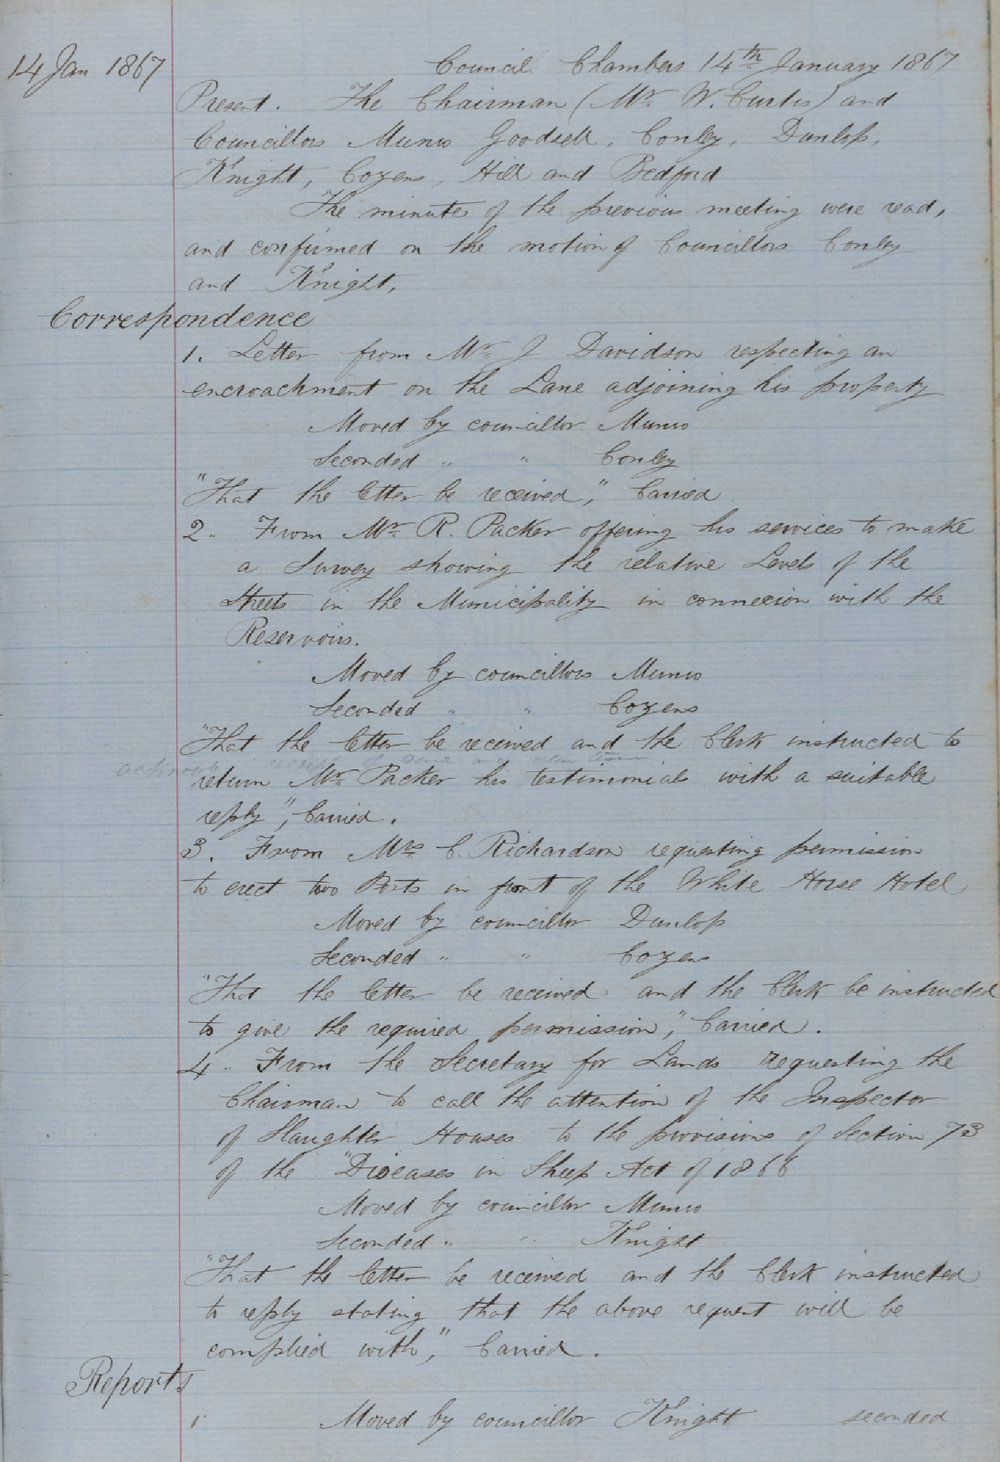 14 Jan 1867
Council Chambers 14th January 1867
Present. The Chairman (Mr. W. Curtis) and
Councillors Munro Goodsell, Conley, Dunlop,
Knight, Cozens, Hill and Bedford
The minutes of the previous meeting were read,
and confirmed on the motion of Councillors Conley
and Knight,
Correspondence
1. Letter from Mr. J Davidson respecting an
encroachment on the Lane adjoining his property
Moved by councillor Munro
Seconded " " Conley
"That the letter be received," Carried
2. From Mr. R. Packer offering his services to make
a Survey showing the relative Levels of the
Streets in the Municipality in connexion with the
Reservoirs.
Moved by councillors Munro
Seconded " " Cozens
"That the letter be received and the Clerk instructed to
return Mr. Packer his testimonials with a suitable
reply", Carried.
3. From Mrs. C. Richardson requesting permission
to erect two Posts in front of the White Horse Hotel
Moved by councillor Dunlop
Seconded " " Cozens
"That the letter be received and the Clerk be instructed
to give the required permission," Carried.
4. From the Secretary for Lands requesting the
Chairman to call the attention of the Inspector
of Slaughter Houses to the provisions of Section 73
of the "Diseases in Sheep Act of 1866
Moved by councillor Munro
Seconded " " Knight
"That the letter be received and the Clerk instructed
to reply stating that the above request will be
complied with", Carried.
Reports
1. Moved by councillor Knight seconded